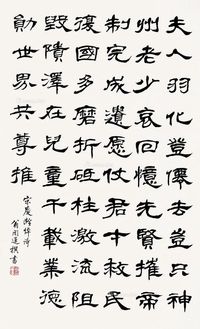 夫人羽化登僊去豈只神
州老少哀回憶先賢摧帝
制完成遺愿仗君才救民
復國多磨折砥柱激流阻
毀隤澤在兒童千載業德
勛世界共尊推
宋慶齡悼詩
翁闿運撰書